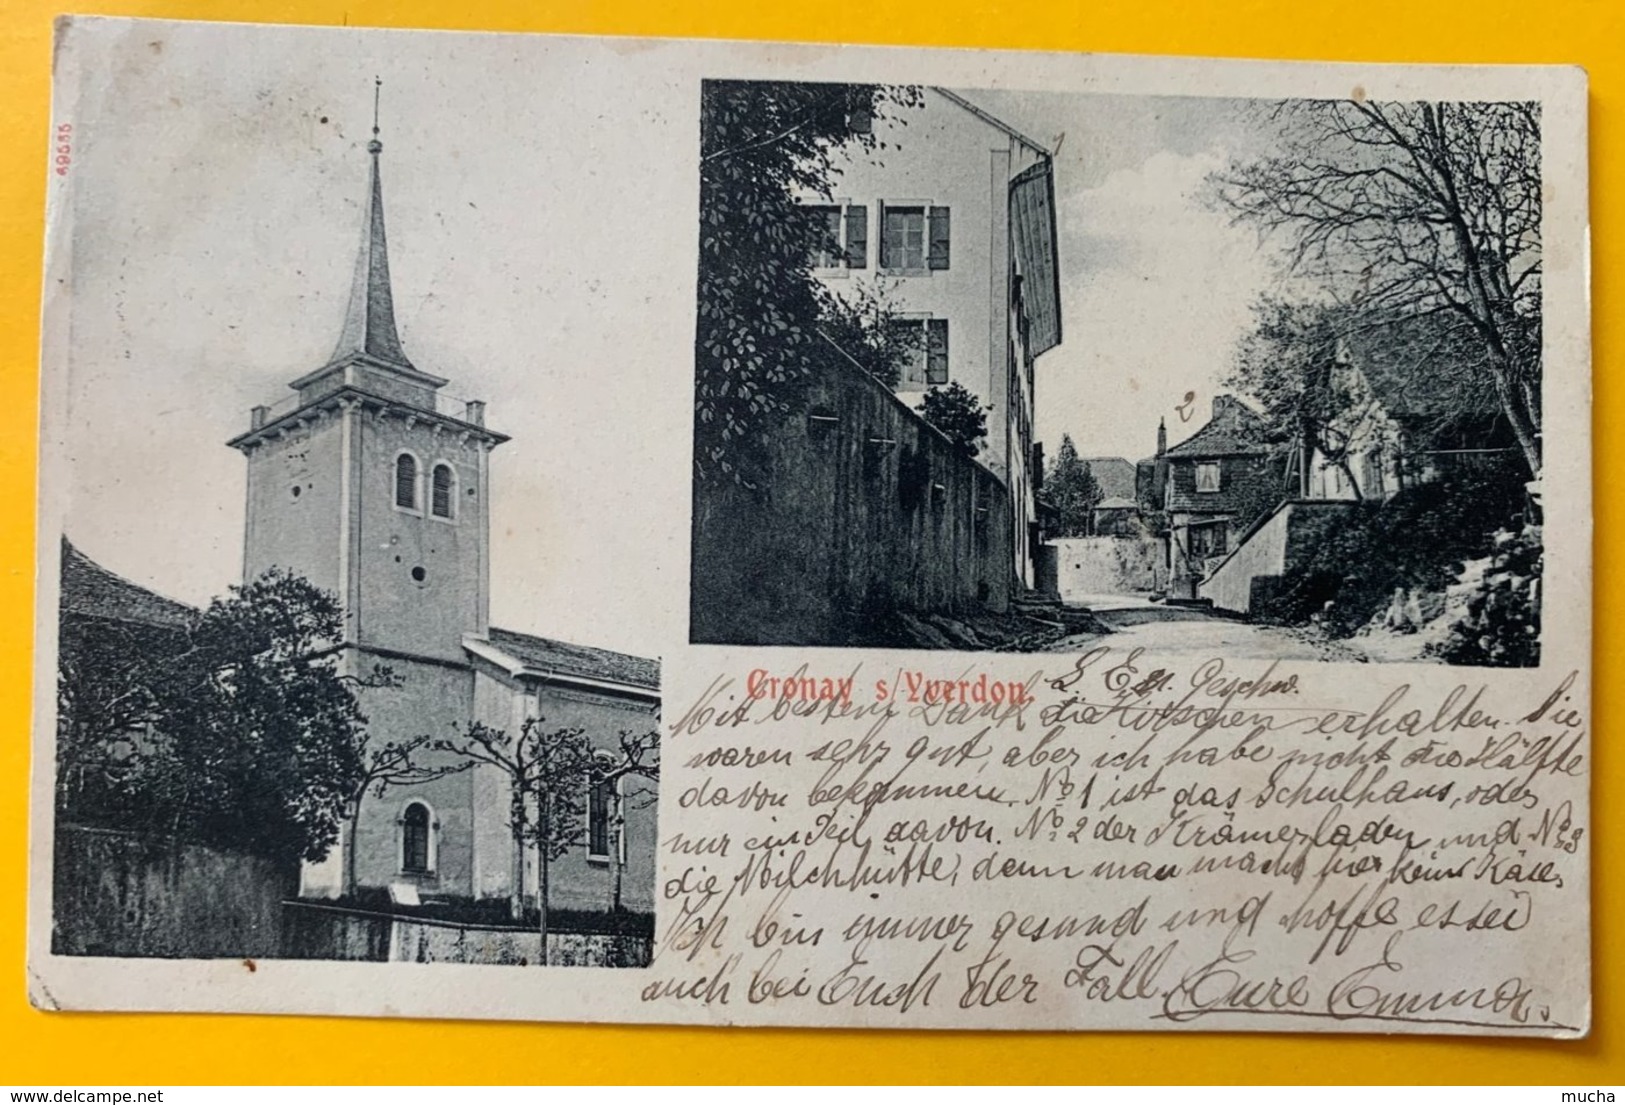 69555
1
2
Cronay s/Yverdon.
L. E. u. Geschw.
Mit bestem Dank die Kirschen erhalten. Sie
waren sehr gut, aber ich habe nicht die Hälfte
davon bekommen. No 1 ist das Schulhaus, oder
nur ein Teil davon. No 2 der Krämerladen und No 3
die Milchhütte, denn man macht hier keine Käse.
Ich bin immer gesund und hoffe es sei
auch bei Euch der Fall. Eure Emma.
delcampe.net
mucha